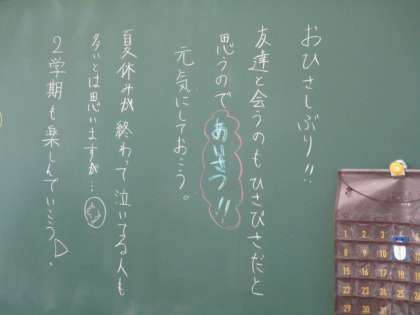 おひさしぶり!!
友達と会うのもひさびさだと
思うので あいさつ!!
元気にしておこう。
夏休みが終わって泣いてる人も
多いとは思いますが…
2学期も楽しんでいこう。
1 2 3
8 9 10
15 16 17 18
22 23 24 25
29 30 31